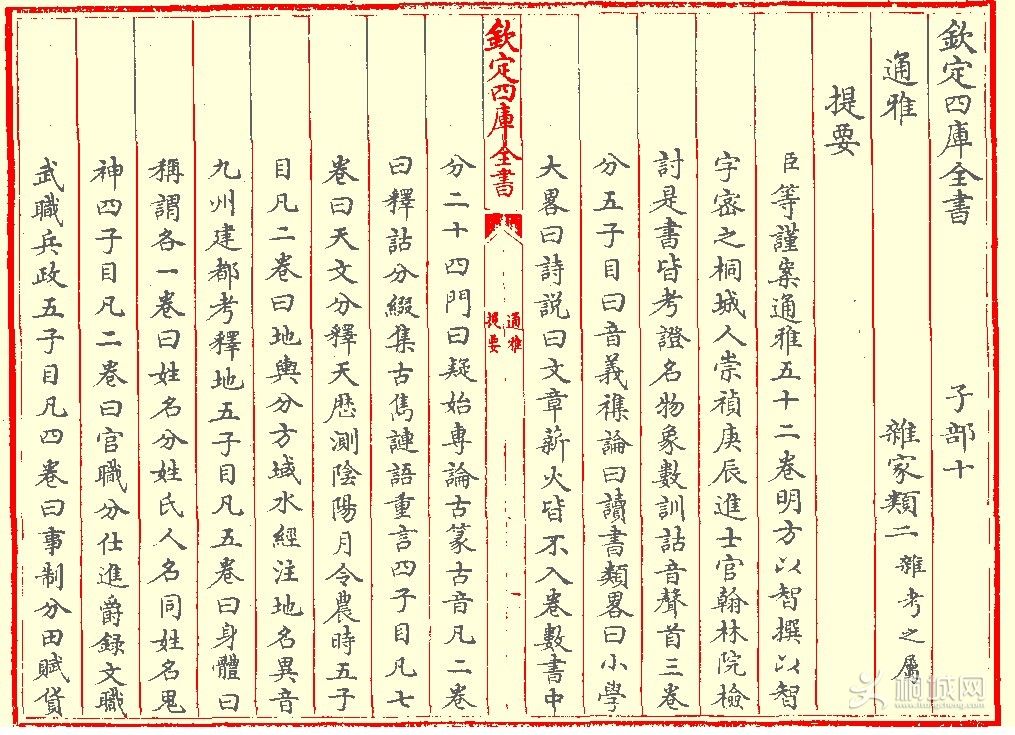 欽定四庫全書　子部十
通雅　雜家類二雜考之屬
提要
臣等謹案通雅五十二卷明方以智撰以智
字密之桐城人崇禎庚辰進士官翰林院檢
討是書皆考證名物象數訓詁音聲首三卷
分五子目曰音義襍論曰讀書類畧曰小學
大畧曰詩說曰文章薪火皆不入卷數書中
欽定四庫全書
通雅
提要
分二十四門曰疑始專論古篆古音凡二卷
曰釋詁分綴集古雋謰語重言四子目凡七
卷曰天文分釋天歴測陰陽月令農時五子
目凡二卷曰地輿分方域水經注地名異音
九州建都考釋地五子目凡五卷曰身體曰
稱謂各一卷曰姓名分姓氏人名同姓名鬼
神四子目凡二卷曰官職分仕進爵録文職
武職兵政五子目凡四卷曰事制分田賦貨
桐城网
www.itongcheng.com